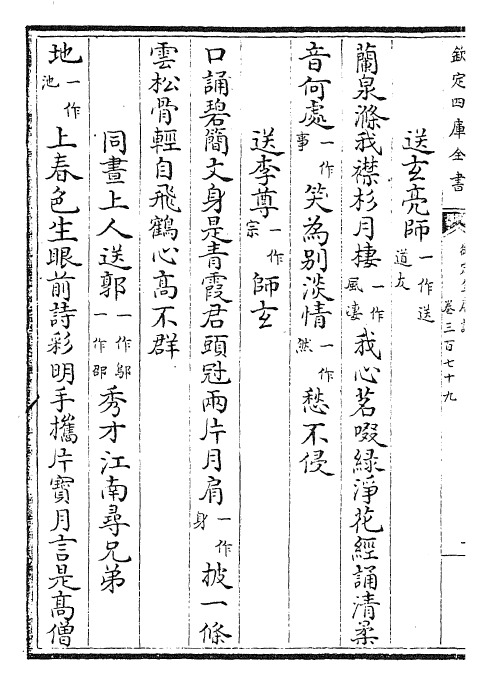 欽定四庫全書
卷三百七十九
送玄亮師一作送道友
蘭泉滌我襟杉月棲一作風淒我心茗啜綠淨花經誦清柔
音何處一作事笑為別淡情一作然愁不侵
送李尊一作宗師玄
口誦碧簡文身是青霞君頭冠兩片月肩一作身披一條
雲松骨輕自飛鶴心高不群
同晝上人送郭一作鄔一作邵秀才江南尋兄弟
地一作池上春色生眼前詩彩明手攜片寶月言是高僧